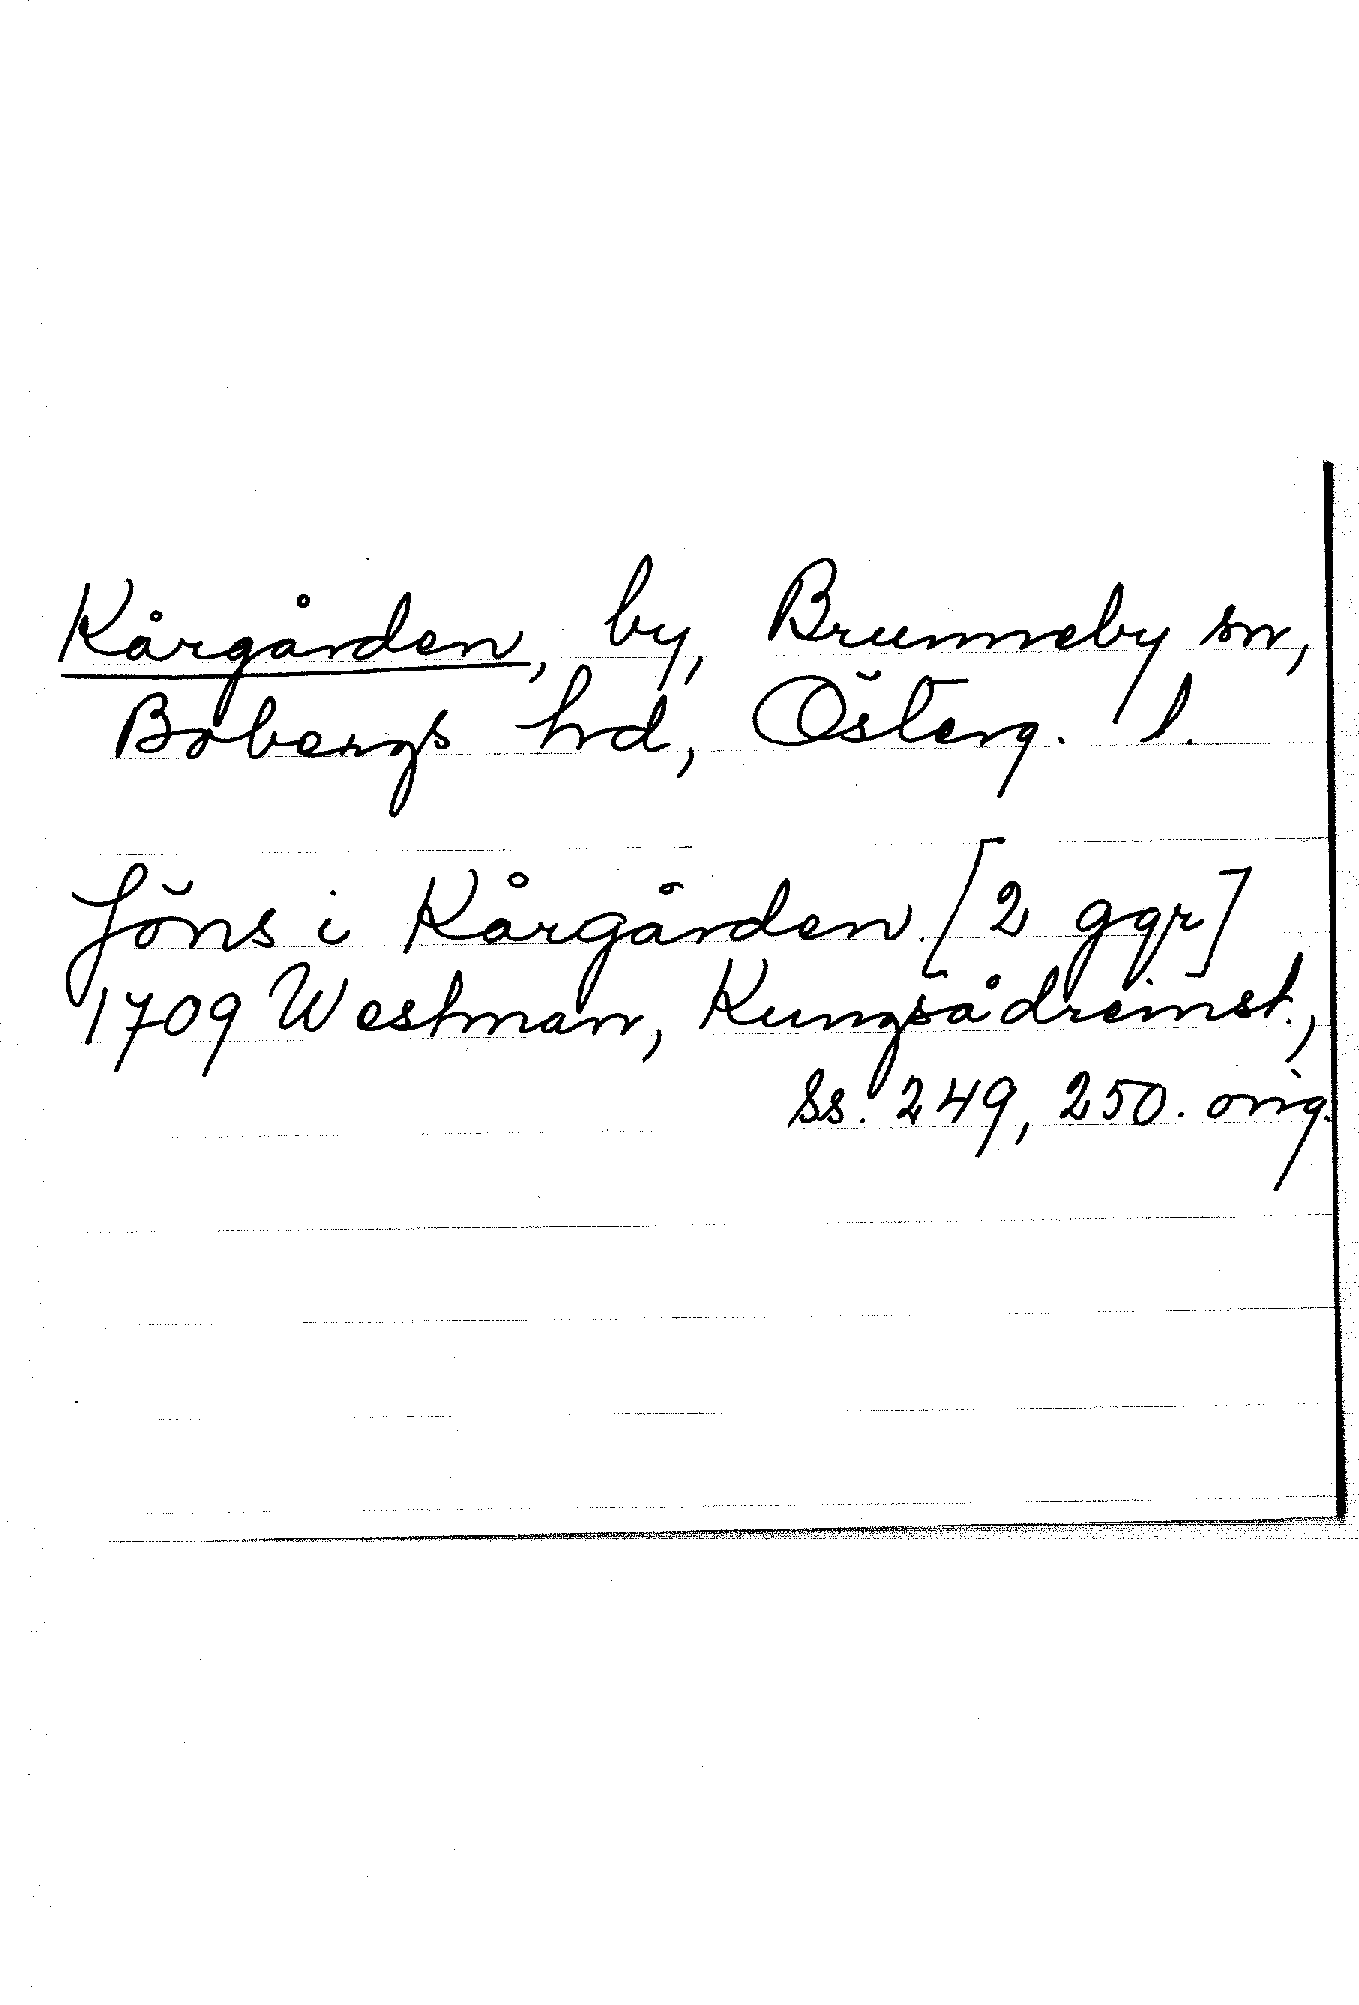 Kårgården, by, Brunneby sn,
Bobergs hd, Österg. l.
Jöns i Kårgården [2 ggr]
1709 Westman, Kungsådreinst.,
Ss. 249, 250. orig.